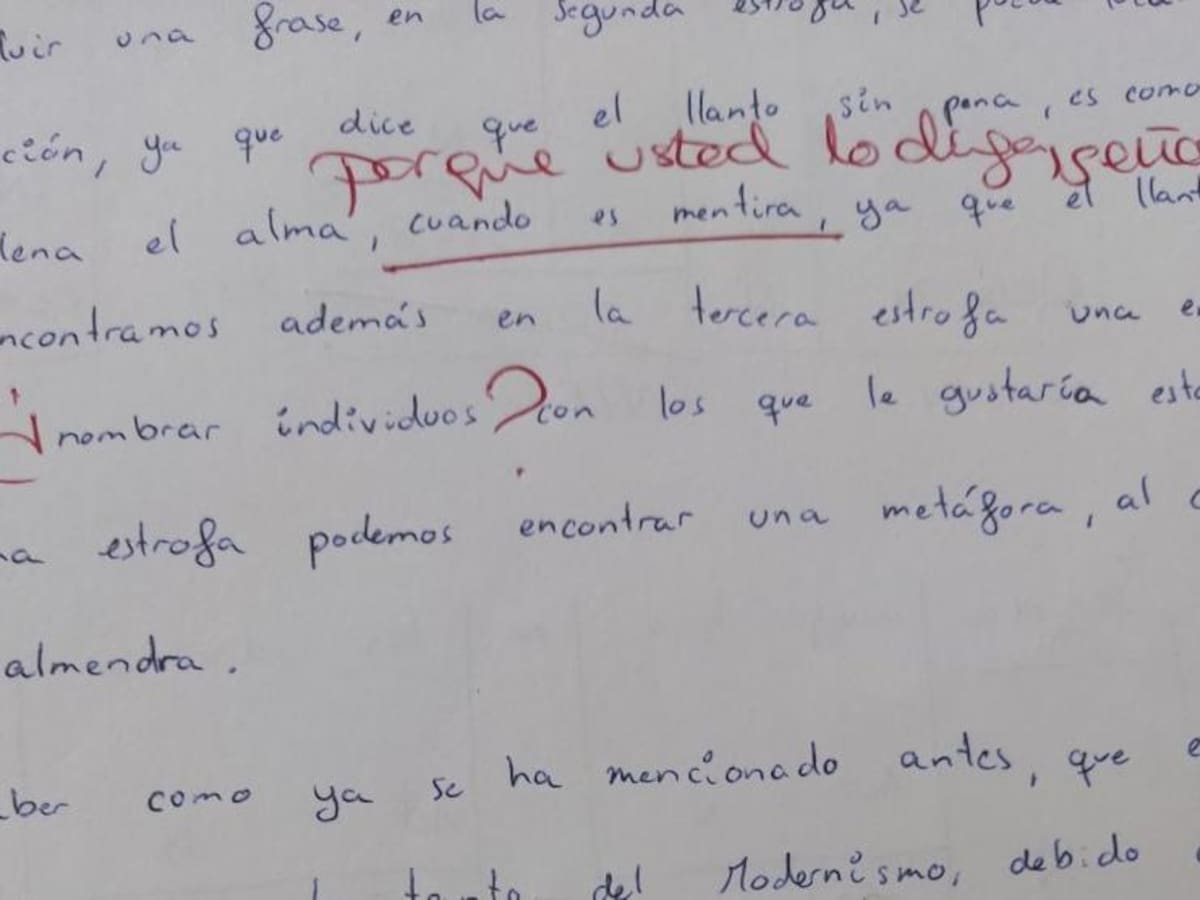 una frase, en la segunda estrofa, se
ción, ya que dice que el llanto sin pena, es como
porque usted lo diga, seño
lena el alma, cuando es mentira, ya que el llant
ncontramos además en la tercera estrofa una e
nombrar individuos ? con los que le gustaría est
estrofa podemos encontrar una metáfora, al
almendra.
ber como ya se ha mencionado antes, que e
del Modernismo, debido